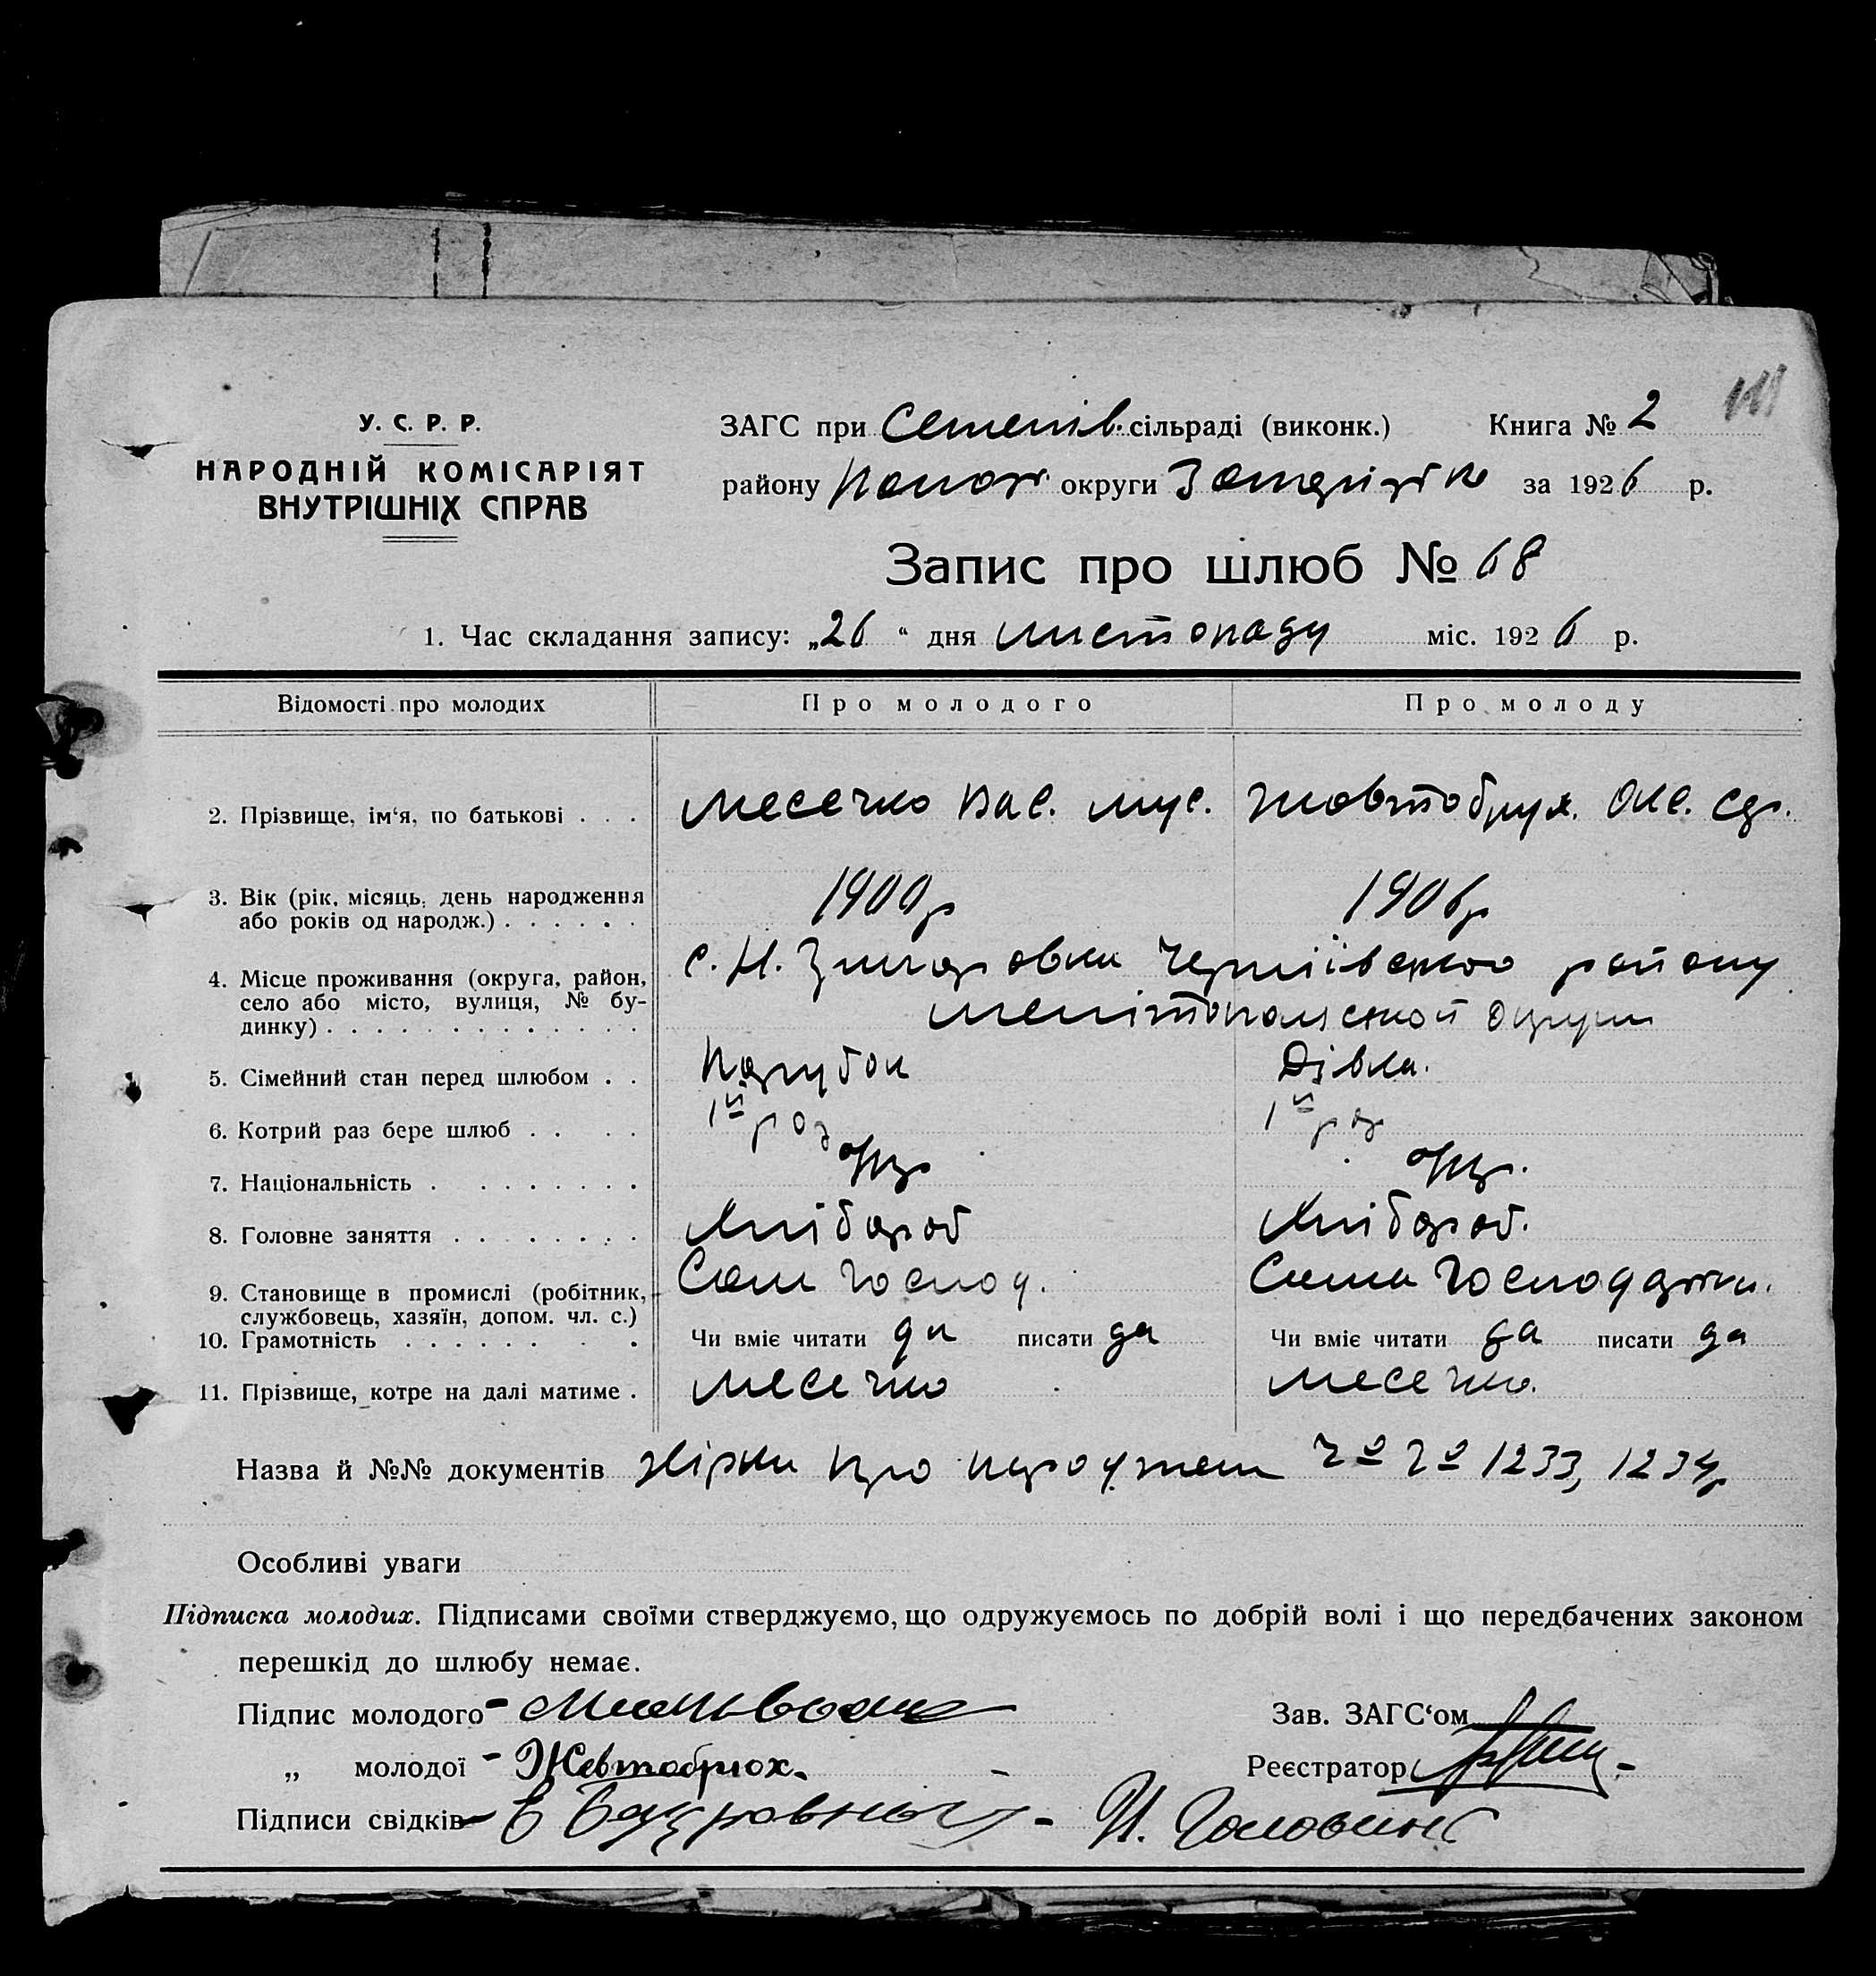 У. С. Р. Р.
НАРОДНІЙ КОМІСАРІЯТ
ВНУТРІШНІХ СПРАВ
ЗАГС при Семенів. сільраді (виконк.) Книга № 2
району округи за 1926 р.
Запис про шлюб № 68
1. Час складання запису: „26“ дня листопаду міс. 1926 р.
Відомості про молодих Про молодого Про молоду
2. Прізвище, ім‘я, по батькові . . . Месечко Вас. Мус. Жовтобрух. Окс. Сд.
3. Вік (рік, місяць, день народження
або років од народж.) . . . . . . 1900р 1906р
4. Місце проживання (округа, район,
село або місто, вулиця, № бу-
динку) . . . . . . . . . . . . .
с. Н. району
округи
5. Сімейний стан перед шлюбом . . Парубок Дівка.
6. Котрий раз бере шлюб . . . . 1й раз 1й раз
7. Національність . . . . . . . . укр укр.
8. Головне заняття . . . . . . . . Хлібороб Хлібороб.
9. Становище в промислі (робітник,
службовець, хазяїн, допом. чл. с.) Сам Господ. Сама Господарка.
10. Грамотність . . . . . . . . Чи вміє читати да писати да Чи вміє читати да писати да
11. Прізвище, котре на далі матиме . Месечко Месечко.
Назва й №№ документів про 1233, 1234
Особливі уваги
Підписка молодих. Підписами своїми стверджуємо, що одружуємось по добрій волі і що передбачених законом
перешкід до шлюбу немає.
Підпис молодого Зав. ЗАГС‘ом
„ молодої - Жевтобрюх. Реєстратор
Підписи свідків